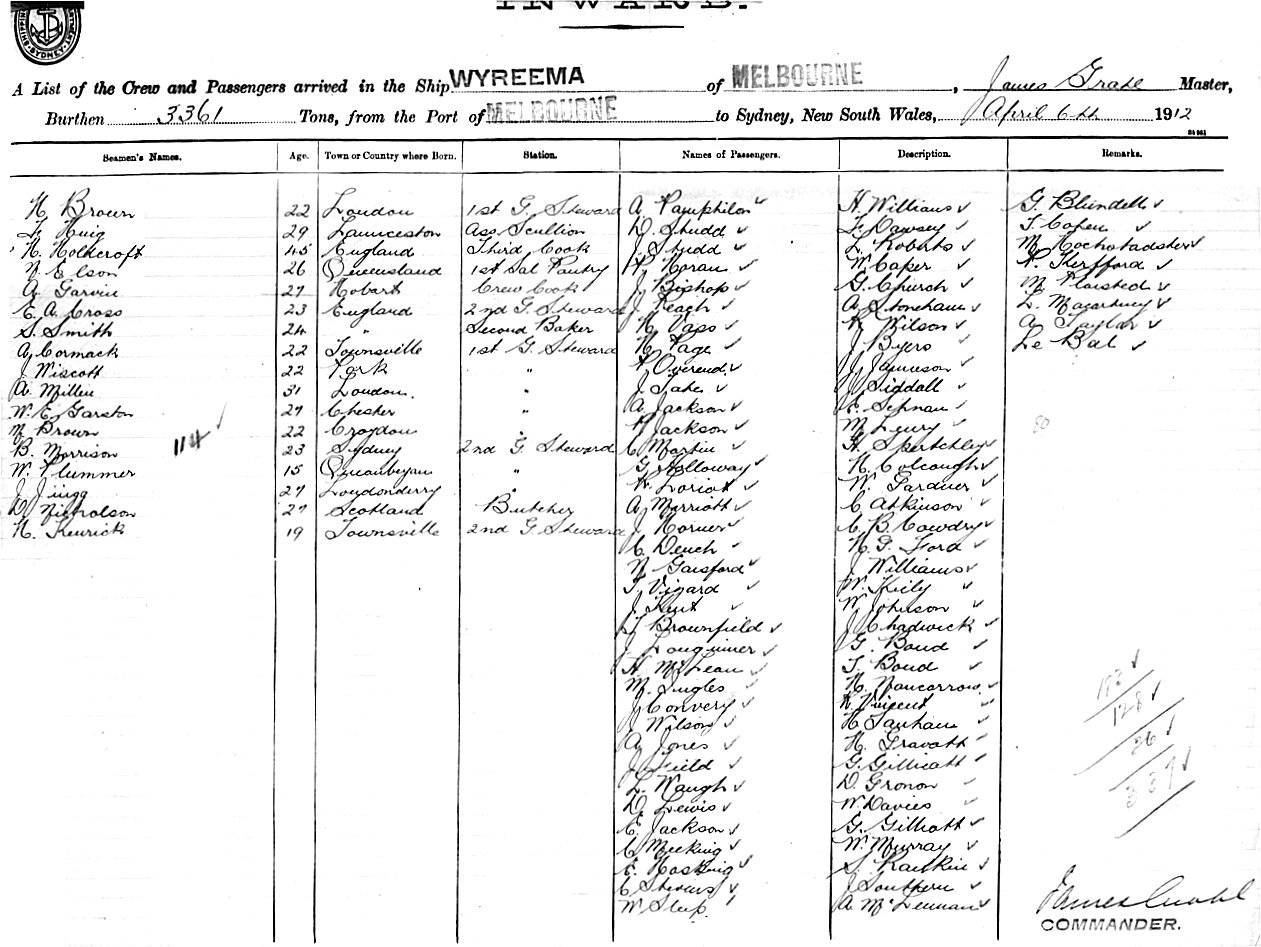 INWARD.
SHIPPING SYDNEY
A List of the Crew and Passengers arrived in the Ship WYREEMA of MELBOURNE, James Grahl Master,
Burthen 3361 Tons, from the Port of MELBOURNE to Sydney, New South Wales, April 6th 1912
Seamen's Names. Age. Town or Country where Born. Station. Names of Passengers. Description. Remarks.
N Brown 22 London 1st G. Steward A Pamphilon H. Williams G Blindell
L Huig 29 Launceston Ass Scullion D. Studd F Dawsey T. Copen
H. Holdcroft 45 England Third Cook J. Studd L Roberts M
N Elson 26 Queensland 1st Sal Pantry P. Horan W. Caper
A Garvin 27 Hobart Crew Cook J Bishop G. Church M Plaisted
E. A. Cross 23 England 2nd G. Steward J Reach A Stoneham L. Macartney
S. Smith 24 " Second Baker H Vass R Wilson A Taylor
A Cormack 22 Townsville 1st G. Steward H Page J Byers Le Bal
J Wiscott 22 York " P Overend J Jamieson
A. Miller 31 London. " J. Jake J Siddall
W. E. Garston 27 Chester " A Jackson
N Brown 22 Croydon " P Jackson M Leury
B. Morrison 114 23 Sydney 2nd G. Steward C Martin
W. Plummer 15 Queanbeyan " G Holloway H. Colcough
27 Londonderry " Loriot W. Gardner
D Nicholson 27 Scotland Butcher A Merriott C Atkinson
H. Kenrick 19 Townsville 2nd G. Steward J Horner C. B. Cowdry
C Dench H. G. Ford
N Gaisford J Williams
T Vizard W. Kiely
J Kent W Johnson
T Brownfield J Chadwick
J Longuiner G. Bond
H. McLean T. Bond
M. Ingles H. Nancarrow
J Convery R Vincent
J Wilson H Tanham
A Jones H. Gravatt
J Field G. Gilliatt
L. Waugh D. Gronon
D Lewis W Davies
E. Jackson G. Gilliatt
C Meeking W. Murray
E. Hosking S. Rankin
C Stevens J Southern
W Sleep. A McLennan
80
183
128
26
337
James Grahl
COMMANDER.